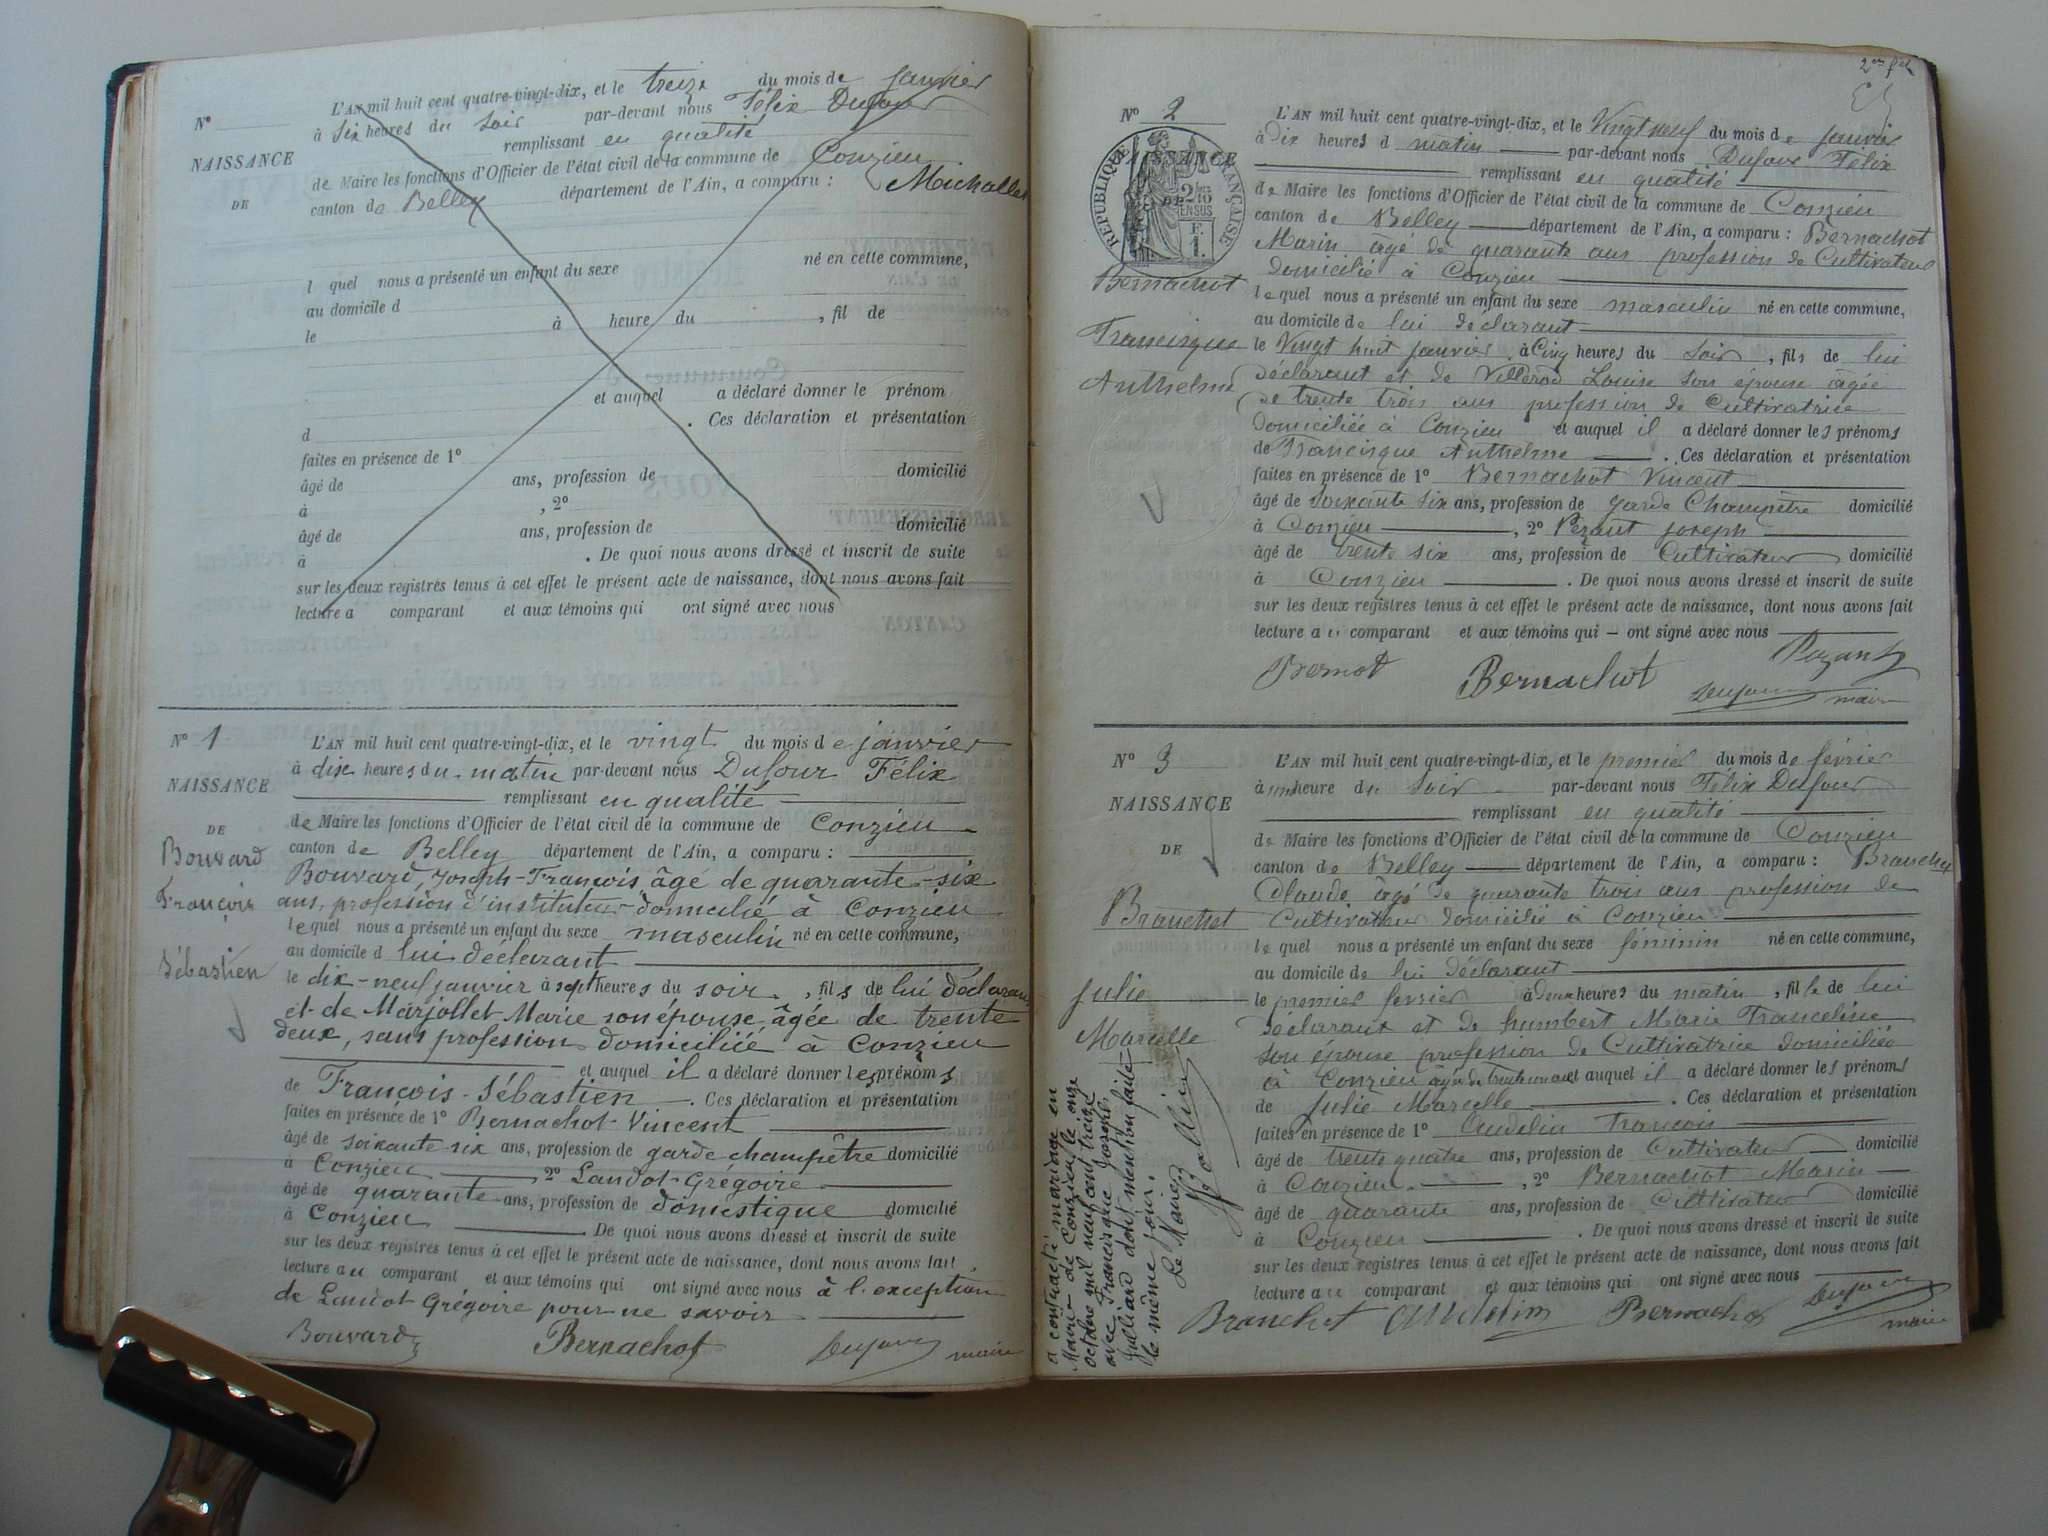 N°
NAISSANCE
DE
L'AN mil huit cent quatre-vingt-dix, et le treize du mois de janvier
à six heures du soir par-devant nous Félix Dufour
remplissant en qualité
de Maire les fonctions d'Officier de l'état civil de la commune de Conzieu
canton de Belley département de l'Ain, a comparu : Michollet
l quel nous a présenté un enfant du sexe né en cette commune,
au domicile d
le à heure du , fil de
et auquel a déclaré donner le prénom
d . Ces déclaration et présentation
faites en présence de 1°
âgé de ans, profession de domicilié
à , 2°
âgé de ans, profession de domicilié
à . De quoi nous avons dressé et inscrit de suite
sur les deux registres tenus à cet effet le présent acte de naissance, dont nous avons fait
lecture a comparant et aux témoins qui ont signé avec nous
N° 1
NAISSANCE
DE
Bouvard
François
Sébastien
L'AN mil huit cent quatre-vingt-dix, et le vingt du mois de janvier
à dix heures du matin par-devant nous Dufour Félix
remplissant en qualité
de Maire les fonctions d'Officier de l'état civil de la commune de Conzieu
canton de Belley département de l'Ain, a comparu :
Bouvard, Joseph-François, âgé de quarante-six
ans, profession d'instituteur domicilié à Conzieu
lequel nous a présenté un enfant du sexe masculin né en cette commune,
au domicile d lui déclarant
le dix-neuf janvier à sept heures du soir, fils de lui déclarant
et de Marjollet Marie son épouse âgée de trente
deux, sans profession domiciliée à Conzieu
et auquel il a déclaré donner les prénoms
de François-Sébastien . Ces déclaration et présentation
faites en présence de 1° Bernachot Vincent
âgé de soixante six ans, profession de garde champêtre domicilié
à Conzieu 2° Landot Grégoire
âgé de quarante ans, profession de domestique domicilié
à Conzieu . De quoi nous avons dressé et inscrit de suite
sur les deux registres tenus à cet effet le présent acte de naissance, dont nous avons fait
lecture au comparant et aux témoins qui ont signé avec nous à l'exception
de Landot Grégoire pour ne savoir
Bouvard Bernachot Dufour maire
N° 2
NAISSANCE
RÉPUBLIQUE FRANÇAISE
Bernachot
Francisque
Anthelme
L'AN mil huit cent quatre-vingt-dix, et le Vingt neuf du mois de janvier
à dix heures d matin par-devant nous Dufour Félix
remplissant en qualité
de Maire les fonctions d'Officier de l'état civil de la commune de Conzieu
canton de Belley département de l'Ain, a comparu : Bernachot
Marin âgé de quarante ans profession de Cultivateur
domicilié à Conzieu
lequel nous a présenté un enfant du sexe masculin né en cette commune,
au domicile de lui déclarant
le Vingt huit janvier, à Cinq heures du soir, fils de lui
déclarant et de Villerod Louise son épouse âgée
de trente trois ans profession de Cultivatrice
domiciliée à Conzieu et auquel il a déclaré donner les prénoms
de Francisque Anthelme . Ces déclaration et présentation
faites en présence de 1° Bernachot Vincent
âgé de soixante six ans, profession de garde Champêtre domicilié
à Conzieu , 2° Pezant Joseph
âgé de trente six ans, profession de Cultivateur domicilié
à Conzieu . De quoi nous avons dressé et inscrit de suite
sur les deux registres tenus à cet effet le présent acte de naissance, dont nous avons fait
lecture au comparant et aux témoins qui – ont signé avec nous
Bernachot Pezant
Dufour maire
N° 3
NAISSANCE
DE
Branchet
Julie
Marcelle
L'AN mil huit cent quatre-vingt-dix, et le premier du mois de février
à une heure du soir par-devant nous Félix Dufour
remplissant en qualité
de Maire les fonctions d'Officier de l'état civil de la commune de Conzieu
canton de Belley département de l'Ain, a comparu : Branchet
Claude âgé de quarante trois ans profession de
Cultivateur domicilié à Conzieu
lequel nous a présenté un enfant du sexe féminin né en cette commune,
au domicile de lui déclarant
le premier février à deux heures du matin, fille de lui
déclarant et de humbert Marie Franceline
son épouse profession de Cultivatrice domiciliée
à Conzieu âgée de et auquel il a déclaré donner les prénoms
de Julie Marcelle . Ces déclaration et présentation
faites en présence de 1° Audelin François
âgé de trente quatre ans, profession de Cultivateur domicilié
à Conzieu , 2° Bernachot Marin
âgé de quarante ans, profession de Cultivateur domicilié
à Conzieu . De quoi nous avons dressé et inscrit de suite
sur les deux registres tenus à cet effet le présent acte de naissance, dont nous avons fait
lecture au comparant et aux témoins qui ont signé avec nous
Branchet Audelin Bernachot Dufour
maire
a contracté mariage en
Mairie de Conzieu le onze
octobre mil neuf cent treize
avec Francisque Joseph
Julliard dont mention faite
le même jour.
Le Maire